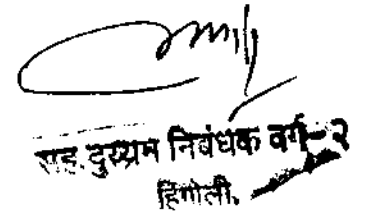 सह. दुय्यम निबंधक वर्ग-२
हिंगोली.